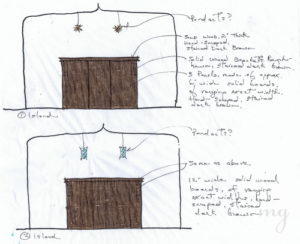 Pendants?
Slab wood, 2" thick
hand-scraped,
stained Dark Brown.
Solid wood
stained dark brown
5 Panels, made of approx.
wide solid boards,
of varying exact width,
hand-scraped, stained
dark brown.
① Island
Pendants?
Same as above.
12" wide solid wood
boards, of varying
exact widths, hand-
scraped, stained
dark brown
② Island